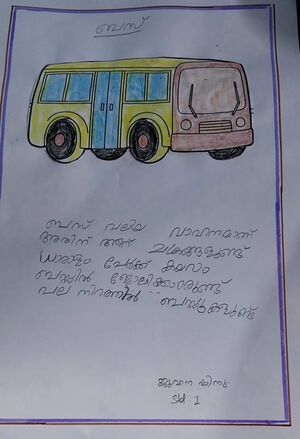 ബസ്
ബസ് വലിയ വാഹനമാണ്
അതിന് ആറ് ചക്രങ്ങളുണ്ട്
ധാരാളം പേർക്ക് കയറാം
ബസ്സിൽ ജോലിക്കാരുണ്ട്
പല നിറത്തിൽ ബസ്സുകളുണ്ട്
ജുവാന ഷിനു
Std I